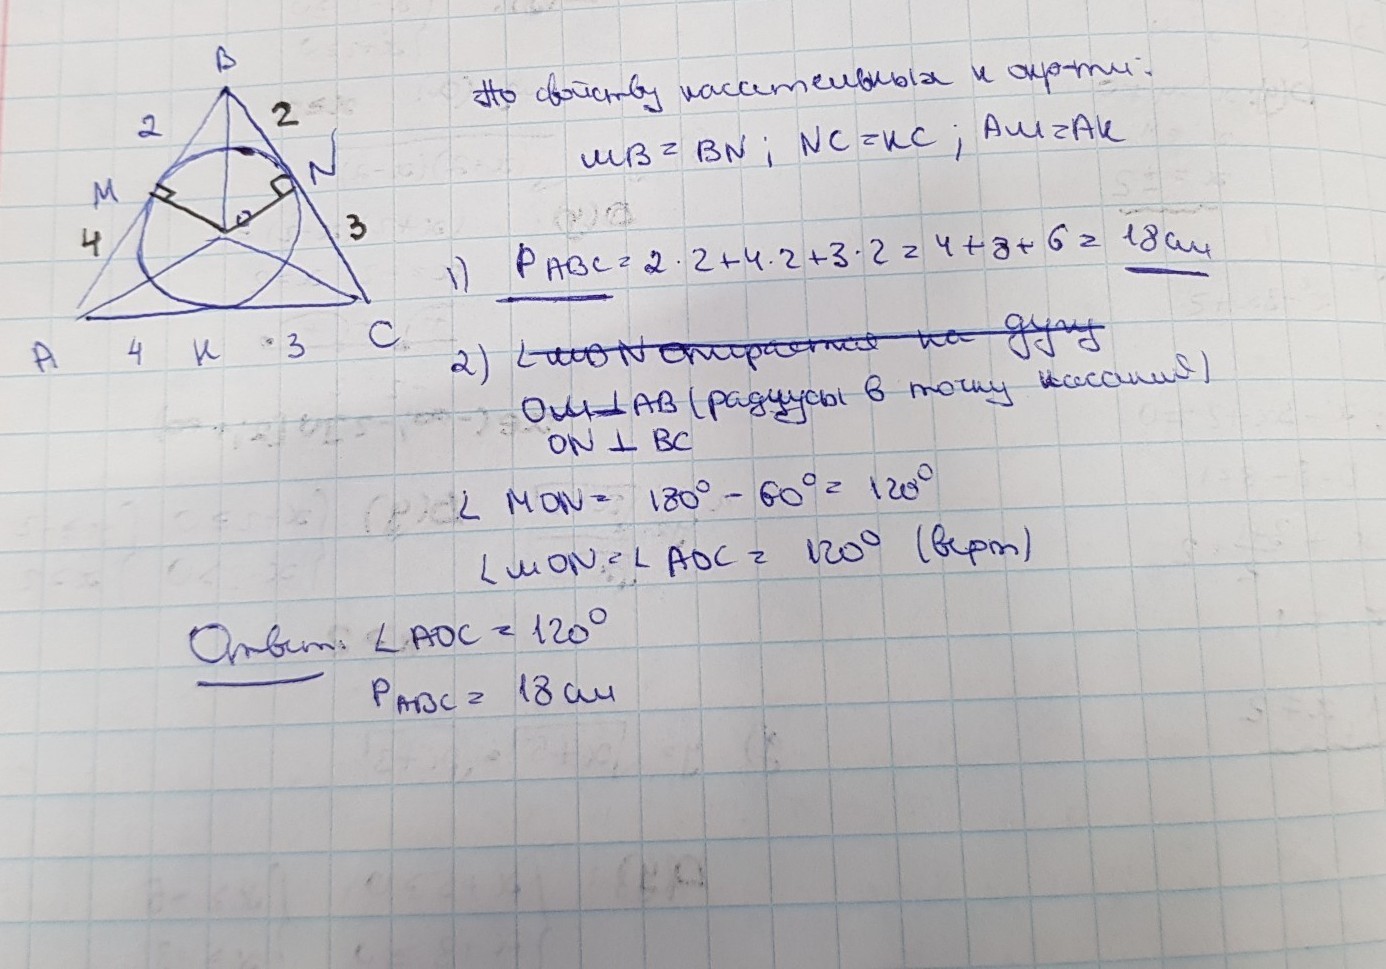 B
2
2
M
N
O
4
3
A
4
K
3
C
По свойству касательных к окр-ти:
MB = BN ; NC = KC ; AM = AK
1) P ABC = 2·2+4·2+3·2 = 4+8+6 = 18 см
2) ∠MON опирается на дугу
OM⊥AB (радиусы в точку касания)
ON ⊥ BC
∠ MON = 180° - 60° = 120°
∠MON = ∠ AOC = 120° (верт)
Ответ: ∠AOC = 120°
P ABC = 18 см